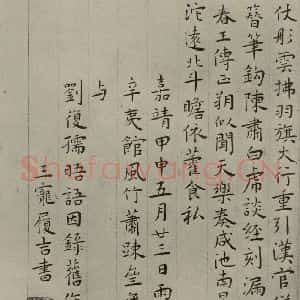 仗彤雲拂羽旗大行重引漢官
簪筆鈎陳肅白席談經刻漏
春工傳正朔似聞天樂奏咸池南
沱遠北斗瞻依藿食私
嘉靖甲申五月廿三日雨
辛夷館風竹蕭疎
与
劉復孺晤語因錄舊
王寵履吉書